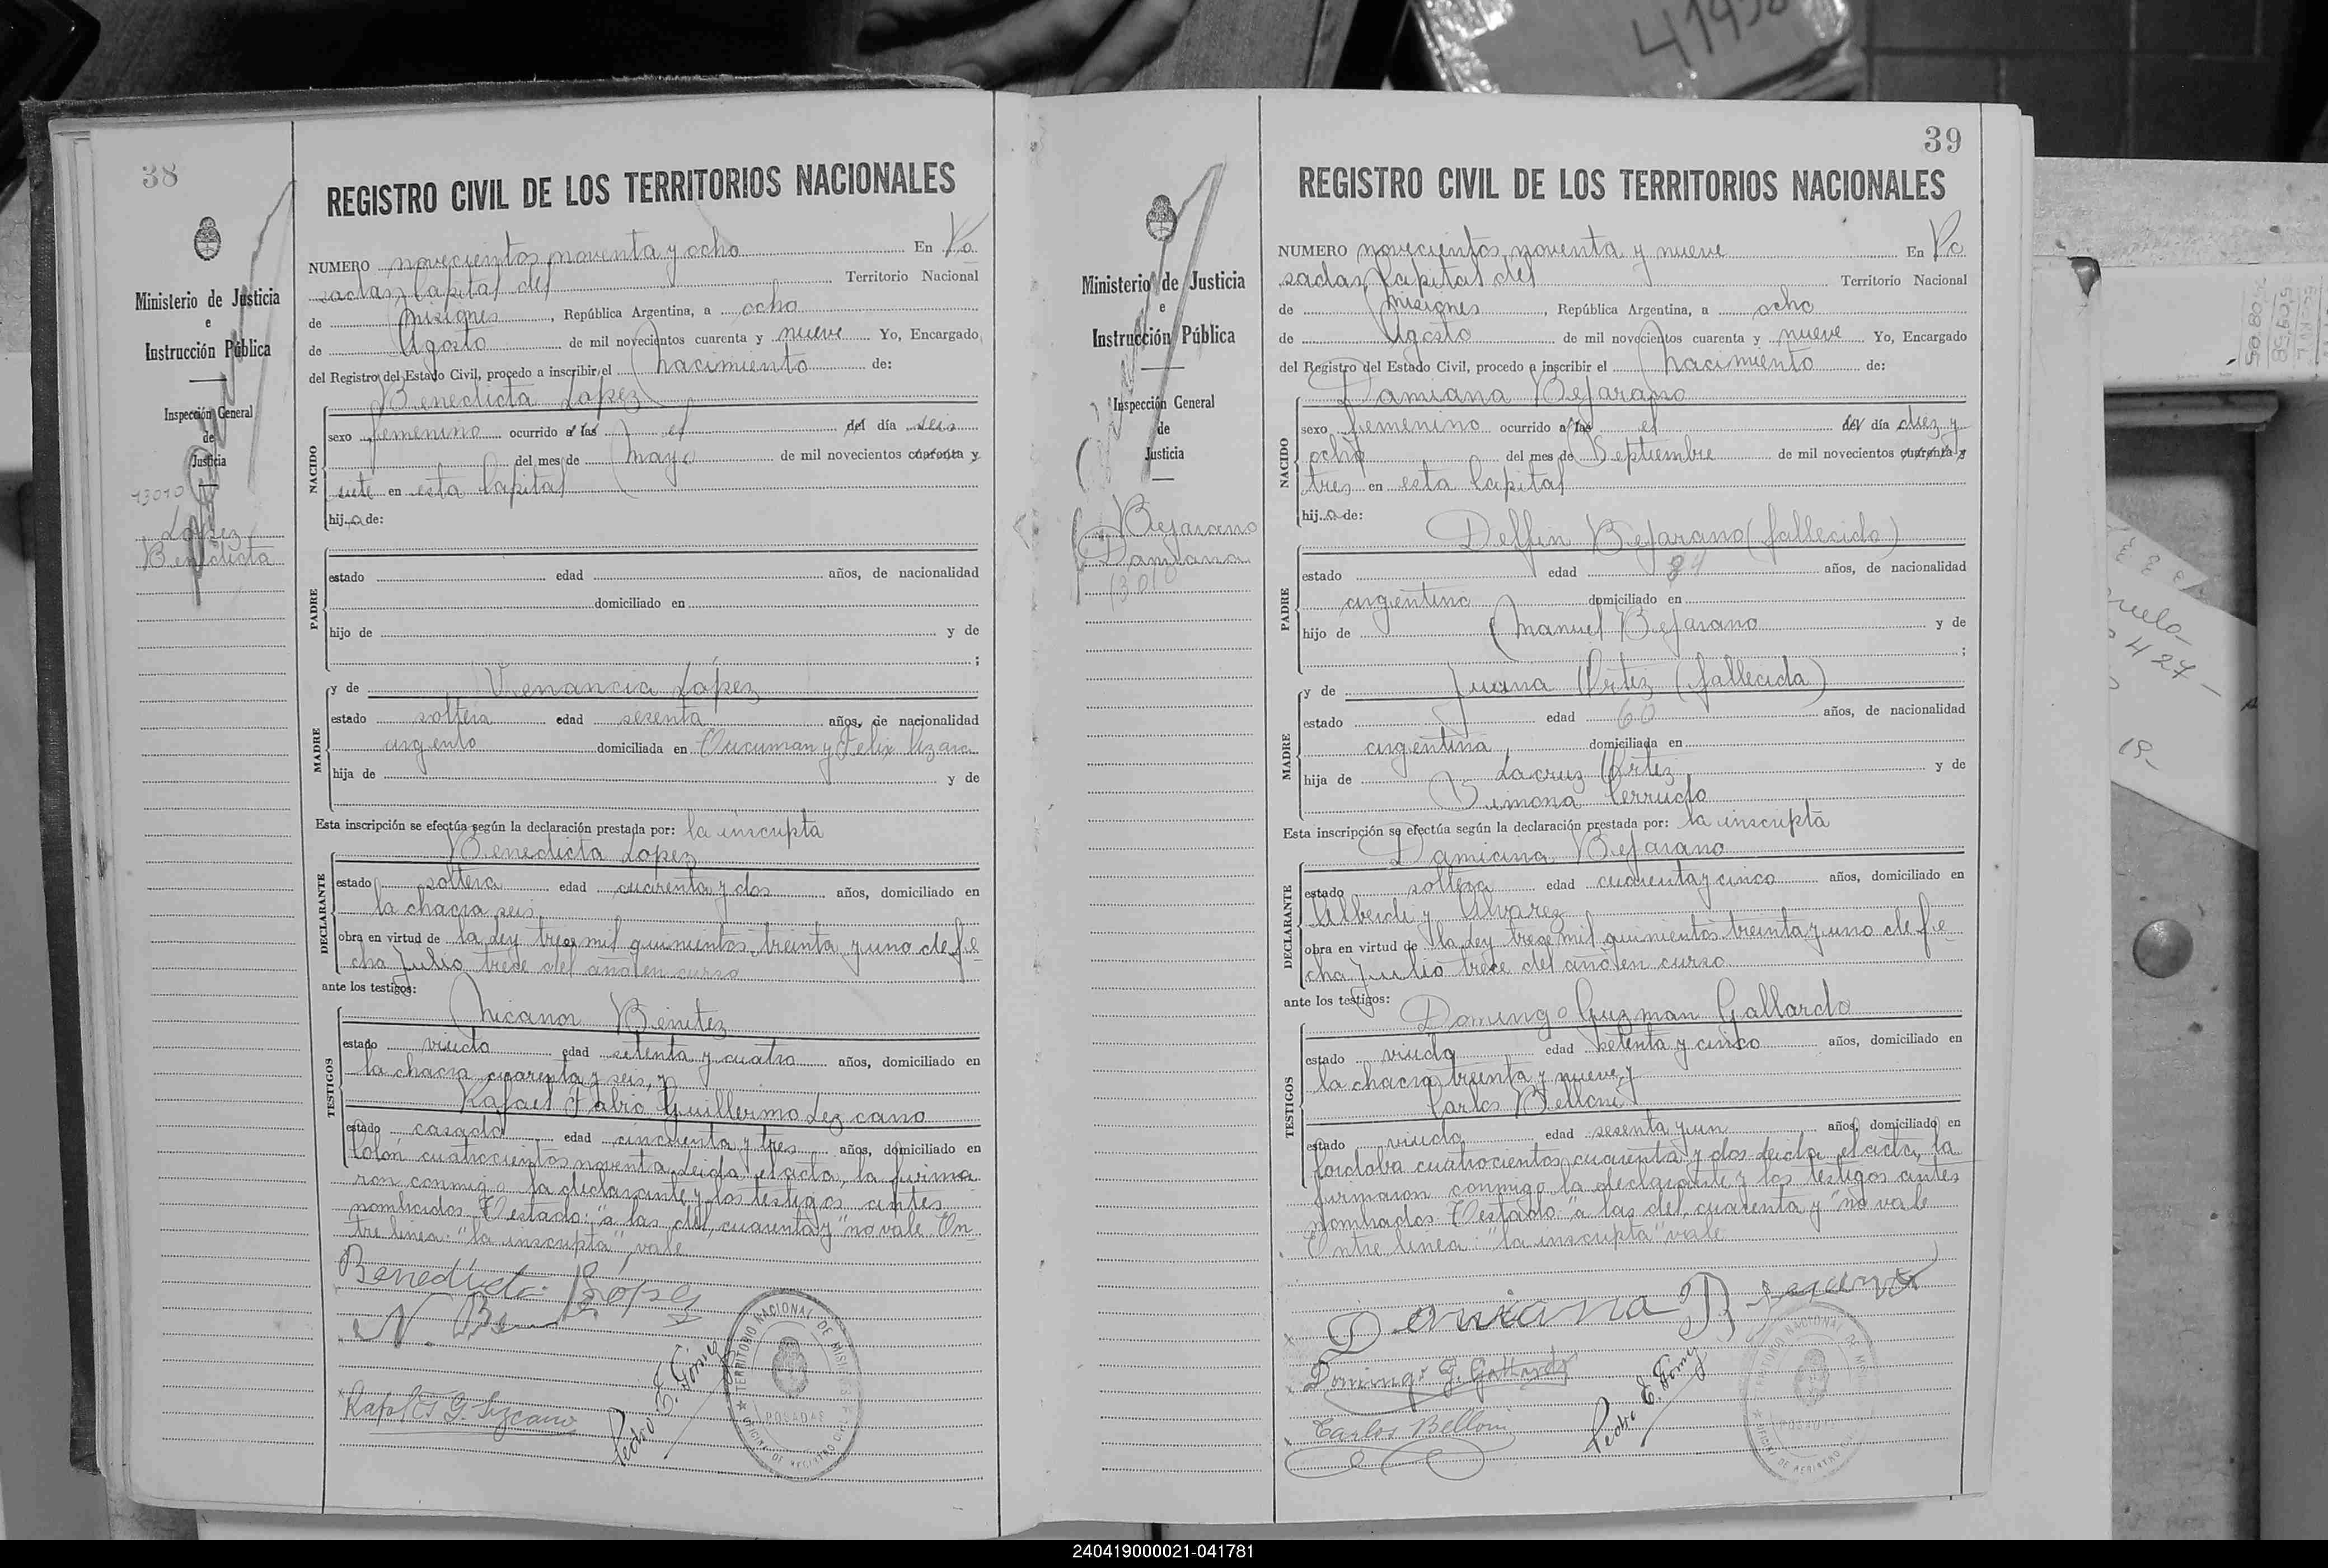 41498
38
Ministerio de Justicia
e
Instrucción Pública
Inspección General
de
Justicia
13010
López
Benedicta
REGISTRO CIVIL DE LOS TERRITORIOS NACIONALES
NUMERO novecientos noventa y ocho En Po
sadas, Capital del Territorio Nacional
de Misiones, República Argentina, a ocho
de Agosto de mil novecientos cuarenta y nueve Yo, Encargado
del Registro del Estado Civil, procedo a inscribir el nacimiento de:
Benedicta Lopez
NACIDO
sexo femenino ocurrido a las el del día seis
del mes de mayo de mil novecientos cuarenta y
siete en esta Capital
hija de:
PADRE
estado edad años, de nacionalidad
domiciliado en
hijo de y de
;
MADRE
y de Venancia López
estado soltera edad sesenta años, de nacionalidad
argento domiciliada en Tucuman y Felix Azara
hija de y de
Esta inscripción se efectúa según la declaración prestada por: la inscripta
Benedicta Lopez
DECLARANTE
estado soltera edad cuarenta y dos años, domiciliado en
la chacra seis
obra en virtud de la Ley trece mil quinientos treinta y uno de fe
cha Julio trece del año en curso
ante los testigos:
Nicanor Benitez
TESTIGOS
estado viudo edad setenta y cuatro años, domiciliado en
la chacra cuarenta y seis, y
Rafael Fabio Guillermo Lezcano
estado casado edad cincuenta y tres años, domiciliado en
Colón cuatrocientos noventa. Leida el acta, la firma
ron conmigo la declarante y los testigos antes
nombrados. Testado: "a las del, cuarenta y" no vale. En
tre linea: "la inscripta", vale
Benedicta López
N. Benitez
Rafael F. G. Lezcano
Pedro E. Gómez
TERRITORIO NACIONAL DE MISIONES
POSADAS
OFICINA DE REGISTRO CIVIL
39
Ministerio de Justicia
e
Instrucción Pública
Inspección General
de
Justicia
Bejarano
Damiana
13010
REGISTRO CIVIL DE LOS TERRITORIOS NACIONALES
NUMERO novecientos noventa y nueve En Po
sadas, Capital del Territorio Nacional
de Misiones, República Argentina, a ocho
de Agosto de mil novecientos cuarenta y nueve Yo, Encargado
del Registro del Estado Civil, procedo a inscribir el nacimiento de:
Damiana Bejarano
NACIDO
sexo femenino ocurrido a las el del día diez y
ocho del mes de Septiembre de mil novecientos cuarenta y
tres en esta Capital
hija de:
Delfin Bejarano (fallecido)
PADRE
estado edad 84 años, de nacionalidad
argentino domiciliado en
hijo de Manuel Bejarano y de
;
MADRE
y de Juana Ortez (fallecida)
estado edad 60 años, de nacionalidad
argentina, domiciliada en
hija de Lacruz Ortez y de
Simona Cerrudo
Esta inscripción se efectúa según la declaración prestada por: la inscripta
Damiana Bejarano
DECLARANTE
estado soltera edad cuarenta y cinco años, domiciliado en
Alberdi y Alvarez
obra en virtud de la Ley trece mil quinientos treinta y uno de fe
cha Julio trece del año en curso
ante los testigos:
Domingo Guzman Gallardo
TESTIGOS
estado viudo edad setenta y cinco años, domiciliado en
la chacra treinta y nueve y
Carlos Belloni
estado viudo edad sesenta y un años, domiciliado en
Cordoba cuatrocientos cuarenta y dos. Leida el acta, la
firmaron conmigo la declarante y los testigos antes
nombrados. Testado: "a las del, cuarenta y" no vale
Entre linea: "la inscripta" vale
Damiana Bejarano
Domingo G. Gallardo
Carlos Belloni
Pedro E. Gómez
TERRITORIO NACIONAL DE MISIONES
POSADAS
OFICINA DE REGISTRO CIVIL
240419000021-041781